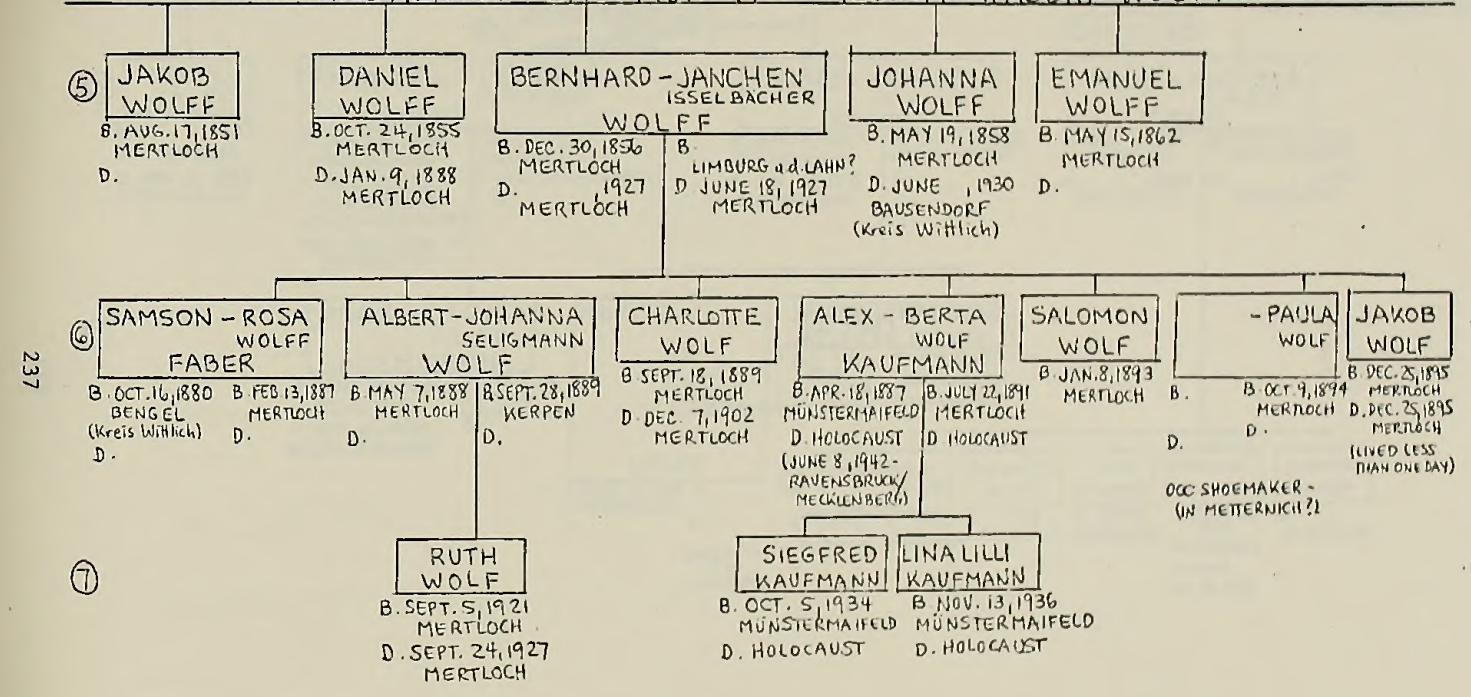 ⑤
JAKOB
WOLFF
B. AUG. 17, 1851
MERTLOCH
D.
DANIEL
WOLFF
B. OCT. 24, 1855
MERTLOCH
D. JAN. 9, 1888
MERTLOCH
BERNHARD - JANCHEN
ISSELBÄCHER
WOLFF
B. DEC. 30, 1856
MERTLOCH
D. , 1927
MERTLOCH
B
LIMBURG a.d. LAHN?
D JUNE 18, 1927
MERTLOCH
JOHANNA
WOLFF
B. MAY 19, 1858
MERTLOCH
D. JUNE , 1930
BAUSENDORF
(Kreis Wittlich)
EMANUEL
WOLFF
B. MAY 15, 1862
MERTLOCH
D.
⑥
SAMSON - ROSA
WOLFF
FABER
B. OCT. 16, 1880
BENGEL
(Kreis Wittlich)
D.
B. FEB 13, 1887
MERTLOCH
D.
ALBERT - JOHANNA
SELIGMANN
WOLF
B. MAY 7, 1888
MERTLOCH
D.
B. SEPT. 28, 1889
KERPEN
D.
CHARLOTTE
WOLF
B SEPT. 18, 1889
MERTLOCH
D. DEC. 7, 1902
MERTLOCH
ALEX - BERTA
WOLF
KAUFMANN
B. APR. 18, 1887
MÜNSTERMAIFELD
D. HOLOCAUST
(JUNE 8, 1942 -
RAVENSBRUCK/
MECKLENBERG)
B. JULY 22, 1891
MERTLOCH
D HOLOCAUST
SALOMON
WOLF
B. JAN. 8, 1893
MERTLOCH
- PAULA
WOLF
B.
D.
OCC SHOEMAKER -
(IN METTERNICH?)
B. OCT. 9, 1894
MERTLOCH
D.
JAKOB
WOLF
B. DEC. 25, 1895
MERTLOCH
D. DEC. 25, 1895
MERTLOCH
(LIVED LESS
THAN ONE DAY)
237
⑦
RUTH
WOLF
B. SEPT. 5, 1921
MERTLOCH
D. SEPT. 24, 1927
MERTLOCH
SIEGFRED
KAUFMANN
B. OCT. 5, 1934
MÜNSTERMAIFELD
D. HOLOCAUST
LINA LILLI
KAUFMANN
B NOV. 13, 1936
MÜNSTERMAIFELD
D. HOLOCAUST